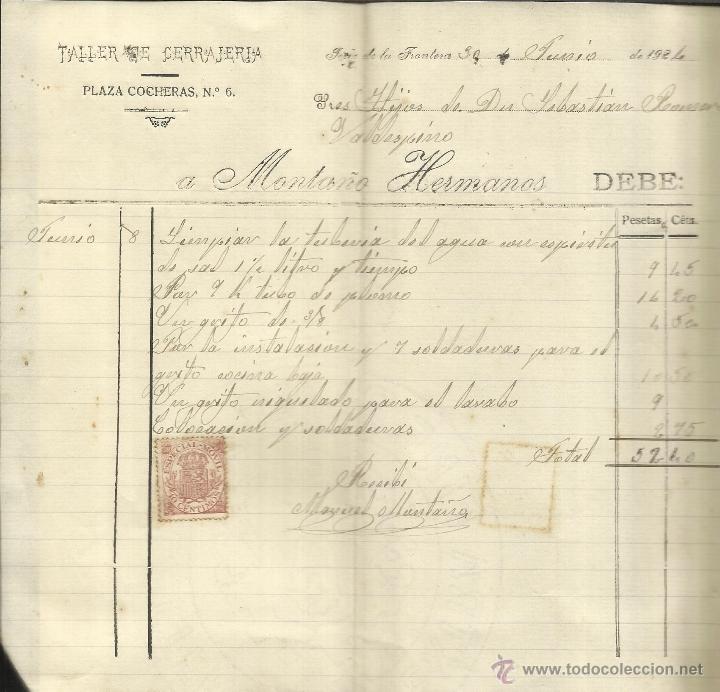 TALLER DE CERRAJERIA
PLAZA COCHERAS, N.º 6.
de la Frontera 30 de Junio de 192
Sres Hijos de Dn Sebastián
Valdespino
a Montaño Hermanos DEBE:
Pesetas Céts.
Junio 8 Limpiar la tuberia del agua con espiritu
de sal 1½ litro y tiempo 9 45
Por 9 k tubo de plomo 16 20
Un grifo de 3/8 4 50
Por la instalacion y 7 soldaduras para el
grifo cocina baja 10 50
Un grifo niquelado para el lavabo 9
Colocacion y soldaduras 2 75
Total 52 40
Recibí
Manuel Montaño
ESPECIAL MÓVIL
10 CENTIMOS
www.todocoleccion.net